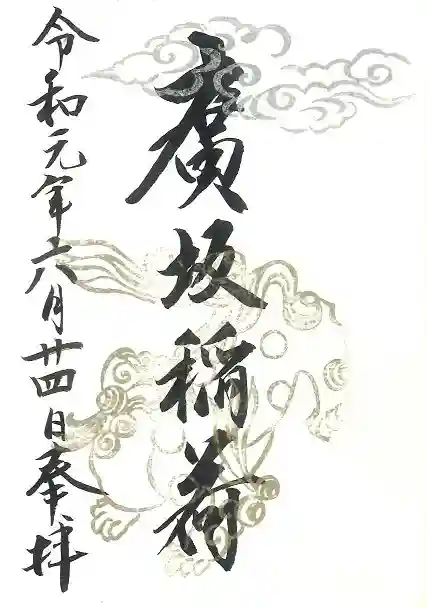 廣坂稲荷
令和元年六月廿四日奉拝